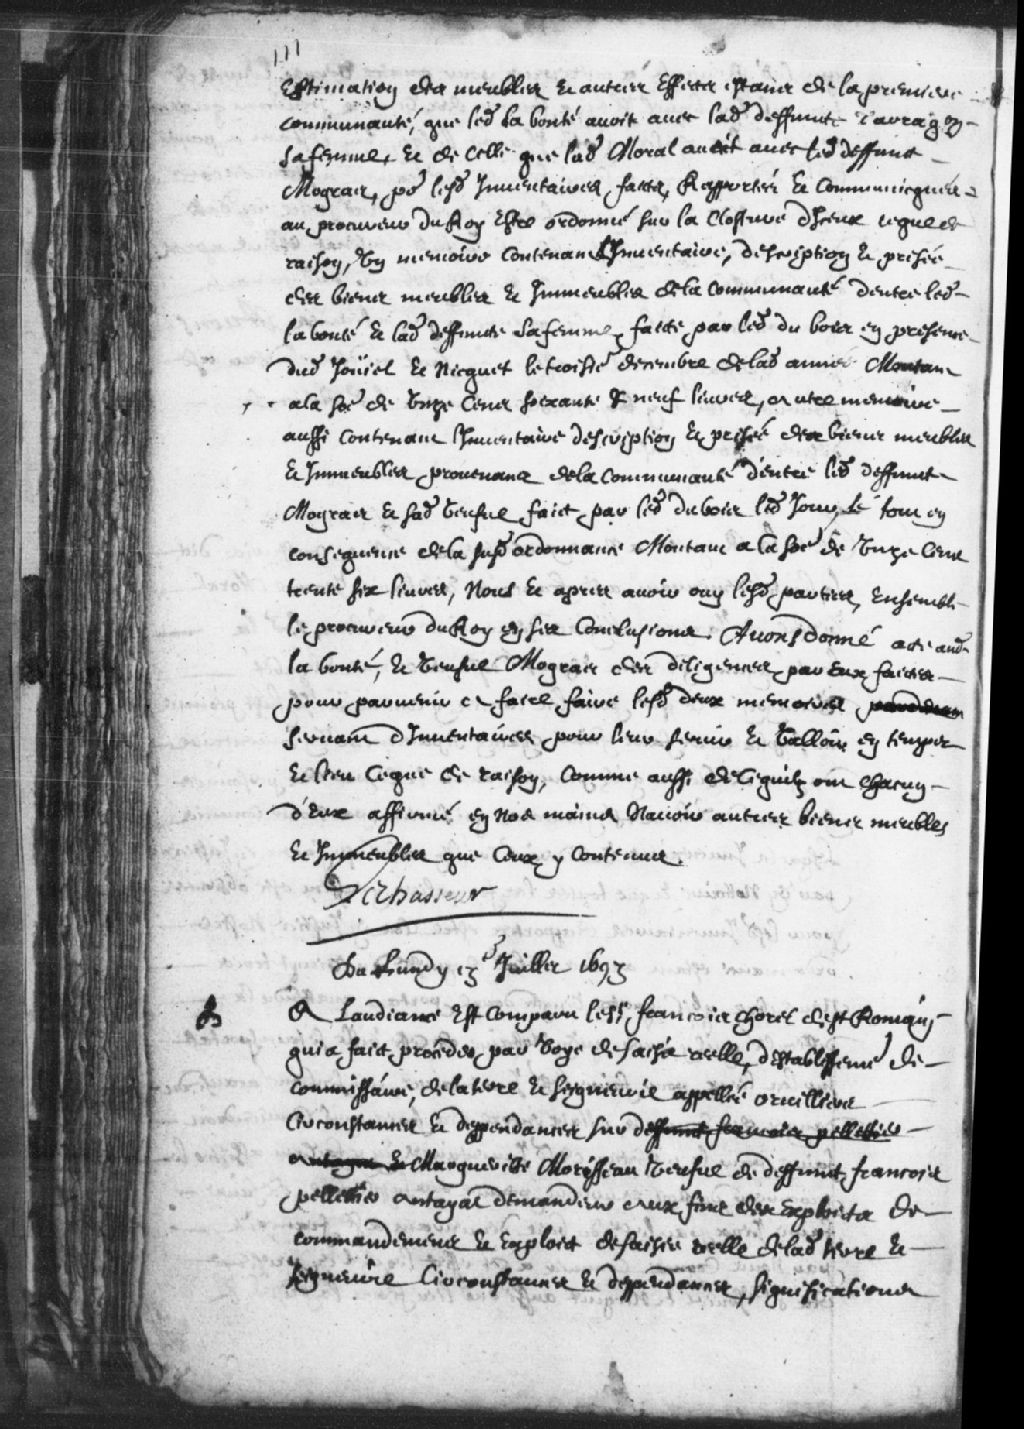 111
Estimation des meubles et autres Effects estans de la premiere
communauté, que led la bonté avoit avec lad deffunte
sa femme, et de Celle que lad Moral avoit avec led deffunt
Mograin, po lesd Inventaires faits, Rapportés et Communicqués
au procureur du Roy Estre ordonné sur la Closture d'Iceux ce que de
raison, Un memoire Contenant Inventaire, description et prisée
des biens meubles et Immeubles de la Communauté d'entre led
la bonté et lad deffunte sa femme, faicte par led du bois en presence
dud et Nicquet le troisie decembre de lad année Montant
a la soe de Unze Cens soixante & neuf livres, autre memoire
aussi Contenant Inventaire description et prisée des biens meubles
et Immeubles provenans de la Communauté d'entre led deffunt
Mograin et sad Veufve faict par led dubois led Jour, le tout en
consequence de la susd ordonnance Montant a la soe de Unze Cens
trente six livres, Nous et apres avoir ouy lesd parties, Ensemble
le procureur du Roy en ses Conclusions. Avons donné acte aud
la bonté, et Veufve Mograin des diligences par Eux faictes
pour parvenir a faire faire lesd deux memoires
servant d'Inventaires pour leur servir et Valloir en temps
et lieu ce que de raison, Comme aussi de ce quilz ont chacun
d'Eux affirmé en Nos mains N'avoir autres biens meubles
et Immeubles que Ceux y Contenus.
Lechasseur
Du Lundy 13e Juillet 1693
A Laudiance Est Comparu le Sr francois Chorel de St Romain
qui a faict proceder par Voye de saisie reelle, d'establissemt de
commissaire, de la terre et seigneurie appellée orvilliere
Circonstances et dependances sur deffunt francois pelletier
antaya et Margueritte Morisseau Veufve de deffunt francois
pelletier antaya demandeur aux fins des Exploicts de
commandement et Exploict de saisie reelle de lad terre et
seigneurie Circonstances et dependances, significations